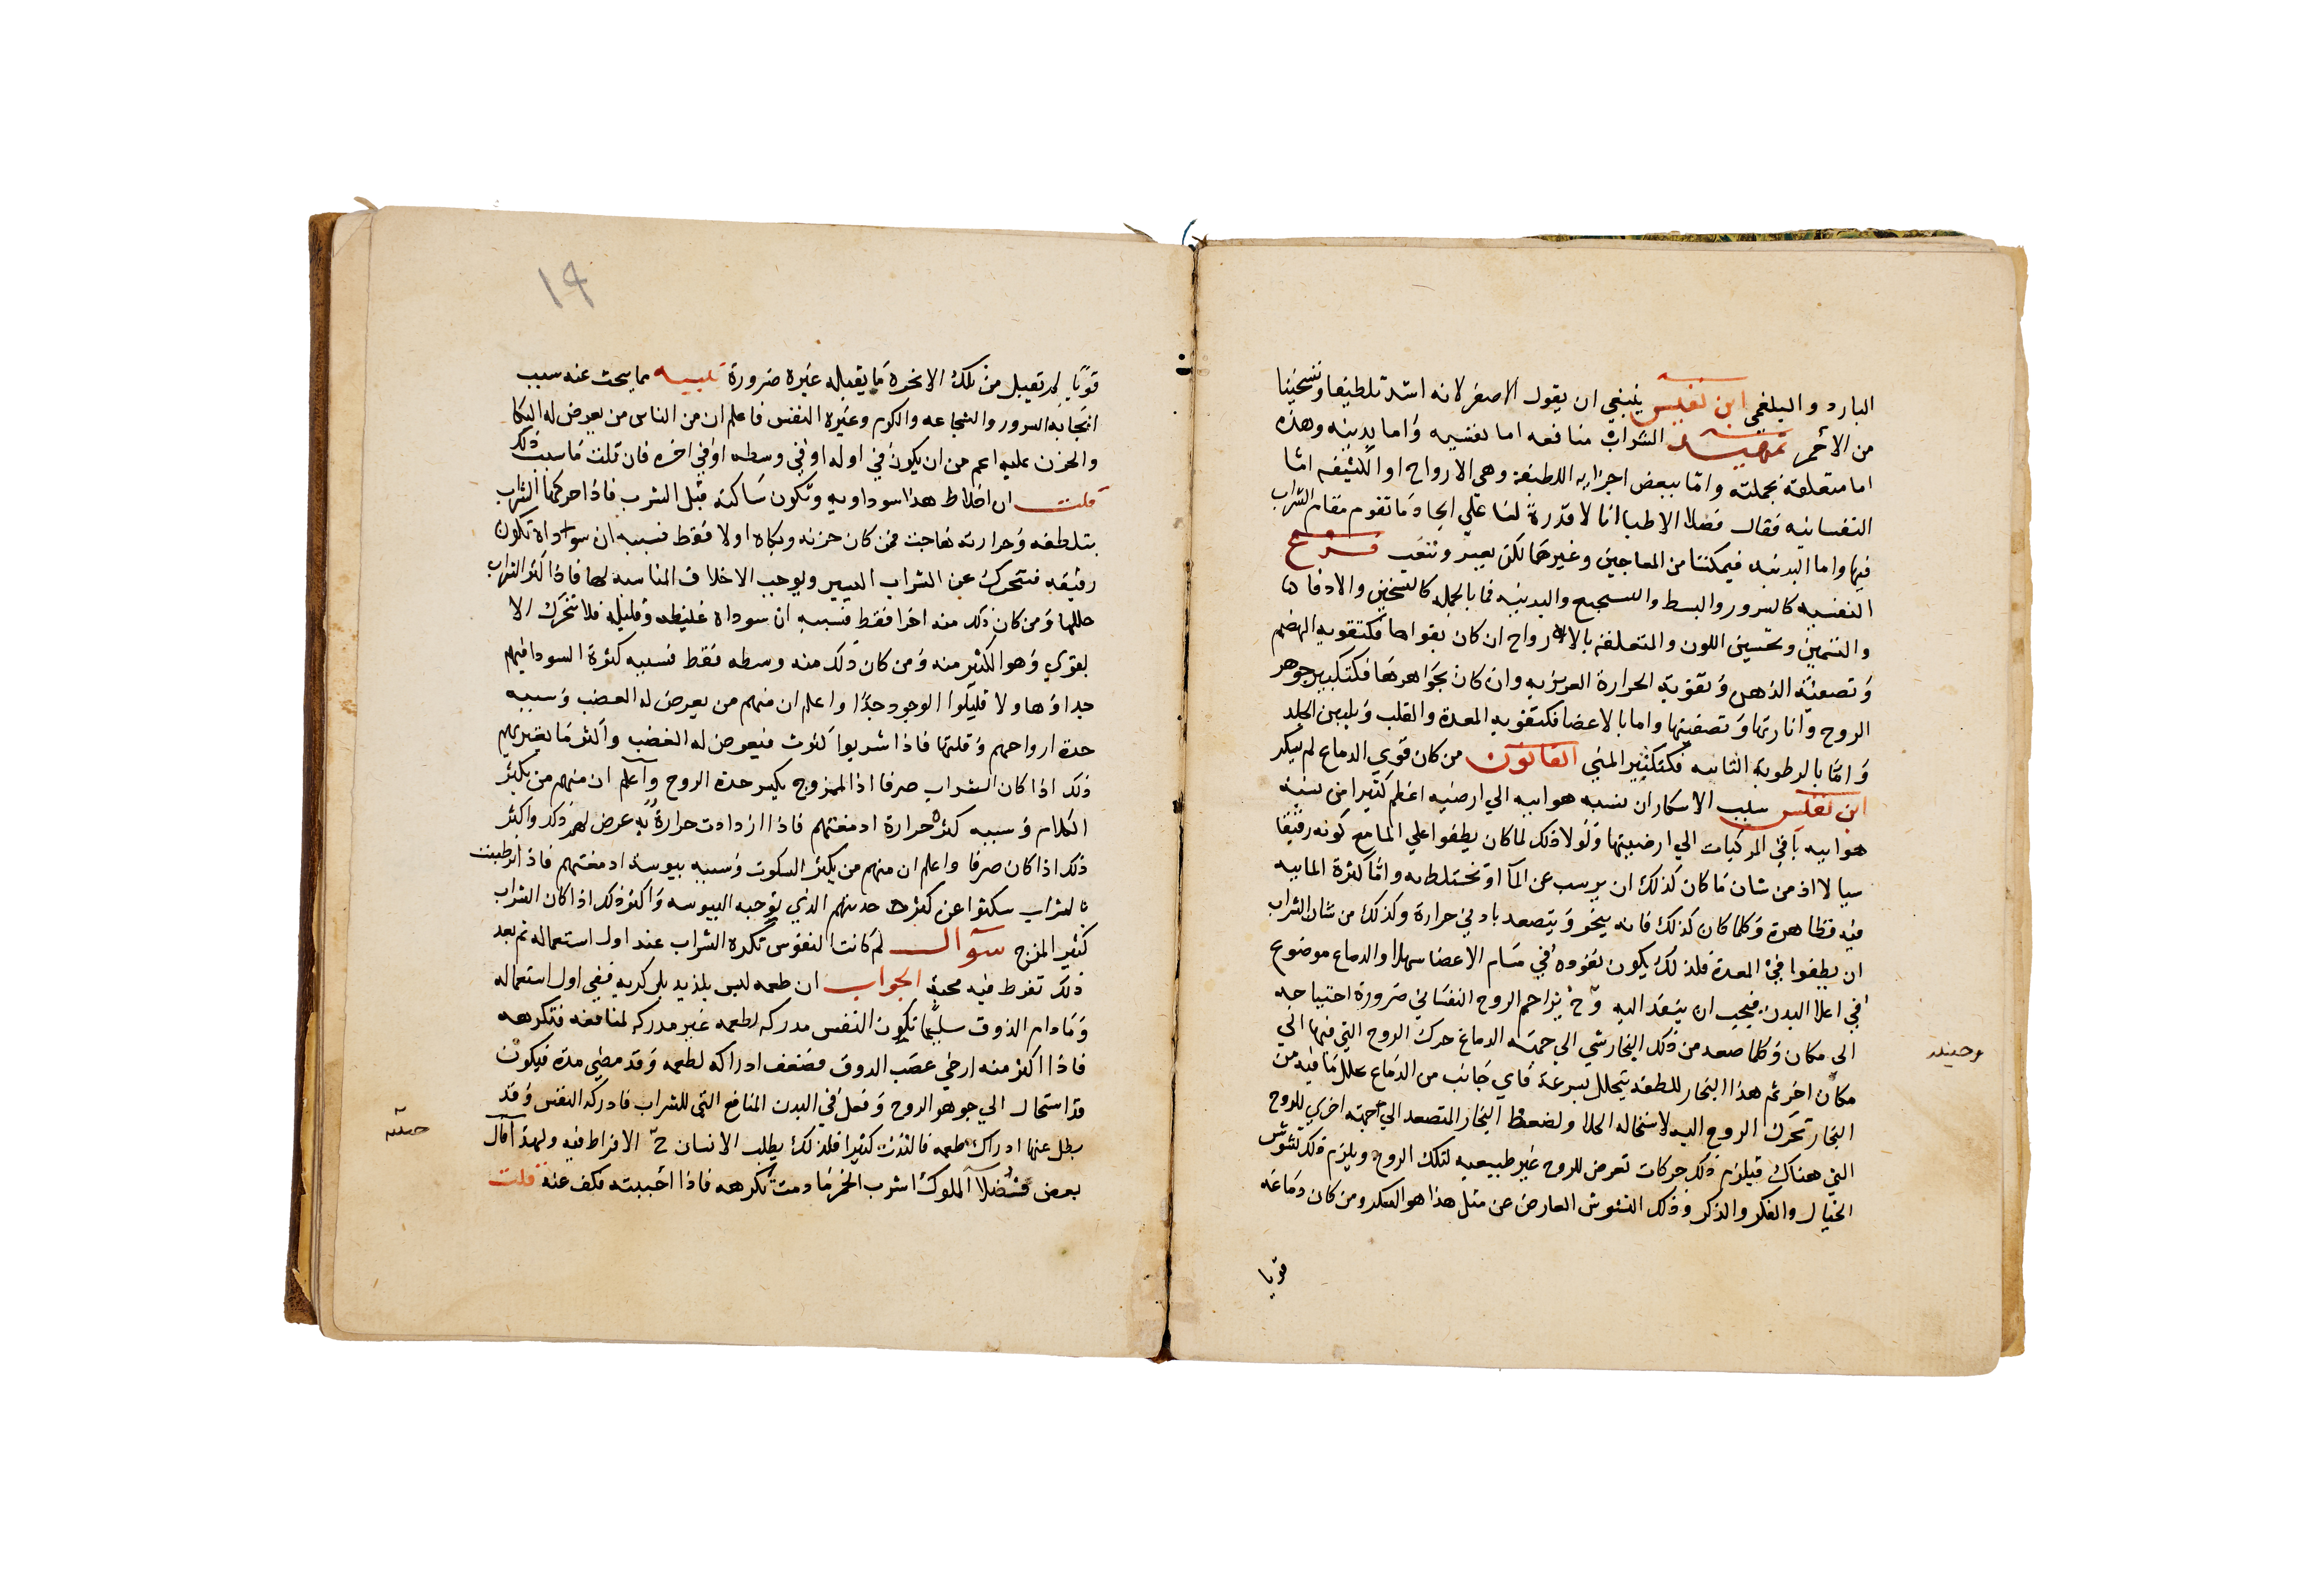 البارد والبلغمي ابن نفيس ينبغي ان يقول الاصفر لانه اشد تلطيفا وتسخينا
من الاحمر تمهيد الشراب منافعه اما نفسيه واما بدنيه وهذه
اما متعلقة بجملته واما ببعض اجزايه اللطيفة وهي الارواح او الكثيفه اما
النفسانيه فقال فضلا الاطبا انا لا قدرة لنا علي ايجاد ما تقوم مقام الشراب
فيها واما البدنيه فيمكننا من المعاجين وغيرها لكن بعسر وتعب شرح
النفسيه كالسرور والبسط والتشجيع والبدنيه فما بالجمله كالتسخين والادفا
والتسمين وتحسين اللون والمتعلقة بالارواح ان كان بقواها فكتقويه الهضم
وتصفية الذهن وتقوية الحرارة الغريزيه وان كان بجواهرها فكتكثير جوهر
الروح وانارتها وتصفيتها واما بالاعضا فكتقويه المعدة والقلب وتليين الجلد
واما بالرطوبة الثانيه فكتكثير المني القانون من كان قوي الدماغ لم يسكر
ابن نفيس سبب الاسكار ان نسبه هواييه الي ارضيه اعظم كثيرا من نسبة
هواييه باقي المركبات الي ارضيتها ولولا ذلك لما كان يطفوا علي الما مع كونه رقيقا
سيالا اذ من شان ما كان كذلك ان يرسب عن المآ او تختلط به واما كثرة الماييه
فيه فظاهرة وكلما كان كذلك فانه يبخر ويتصعد بادني حرارة وكذلك من شان الشراب
ان يطفوا في المعدة فلذلك يكون نفوذه في مسام الاعضا سهلا والدماغ موضوع
في اعلا البدن فيجب ان ينفذ اليه وح يزاحم الروح النفساني ضرورة احتياجه
الي مكان وكلما صعد من ذلك البخار شي الي جهة الدماغ حرك الروح التي فيها الي
مكان اخر ثم هذا البخار للطفه يتحلل بسرعة فاي جانب من الدماغ تحلل ما فيه من
البخار تحرك الروح اليه لاستحاله الخلا ولضغط البخار المتصعد الي جهته اخري للروح
التي هناك فيلزم ذلك حركات تعرض للروح غير طبيعيه لتلك الروح ويلزم ذلك تشوش
الخيال والفكر والذكر وذلك التشوش العارض عن مثل هذا هو السكر ومن كان دماغه
قويا
وحينيد
١٩
قويا لم تقبل من تلك الابخره ما يقبله غيره ضرورة تنبيه مما يبحث عنه سبب
ايجابه السرور والشجاعه والكرم وغيره النفس فاعلم ان من الناس من يعرض له البكا
والحزن عليه اعم من ان يكون في اوله او في وسطه او في اخره فان قلت ما سبب ذلك
قلت ان اخلاط هذا سوداويه وتكون ساكنة قبل الشرب فاذا حركها الشراب
بتلطفه وحرارته هاجت فمن كان حزنه وبكاه اولا فقط فسببه ان سوداه تكون
رقيقه فتتحرك عن الشراب اليسير ويوجب الاخلاق المناسبه لها فاذا كثر الشراب
حللها ومن كان ذلك منه اخرا فقط فسببه ان سوداه غليظه وقليله فلا تتحرك الا
بقوي وهو الكثير منه ومن كان ذلك منه وسطه فقط فسببه كثرة السودا فيهم
جدا وهاولا قليلوا الوجود جدا واعلم ان منهم من يعرض له الغضب وسببه
حدة ارواحهم وقلتها فاذا شربوا كثرت فيعرض له الغضب واكثر ما يعتريهم
ذلك اذا كان الشراب صرفا اذا الممزوج يكسر حدة الروح واعلم ان منهم من يكثر
الكلام وسببه كثرة حرارة ادمغتهم فاذا ازدادت حرارة به عرض لهم ذلك واكثر
ذلك اذا كان صرفا واعلم ان منهم من يكثر السكوت وسببه يبوسة ادمغتهم فاذا ترطبت
بالشراب سكتوا عن كثرة حديثهم الذي يوجبه اليبوسه واكثر ذلك اذا كان الشراب
كثير المزج سوال لم كانت النفوس تكره الشراب عند اول استعماله ثم بعد
ذلك تفرط فيه محبة الجواب ان طعمه ليس بلذيذ بل كريه ففي اول استعماله
وما دام الذوق سليما تكون النفس مدركه لطعمه غير مدركه لمنافعه فتكرهه
فاذا اكثر منه ارخي عصب الذوق فضعف ادراكه لطعمه وقد مضي مدة فيكون
قد استحال الي جوهر الروح وفعل في البدن المنافع التي للشراب فادركه النفس وقد
بطل عنها ادراك طعمه فالتذت كثيرا فلذلك يطلب الانسان ح الافراط فيه ولهذا قال
بعض فضلا الملوك اشرب الخمر ما دمت تكرهه فاذا احببته فكف عنه قلت